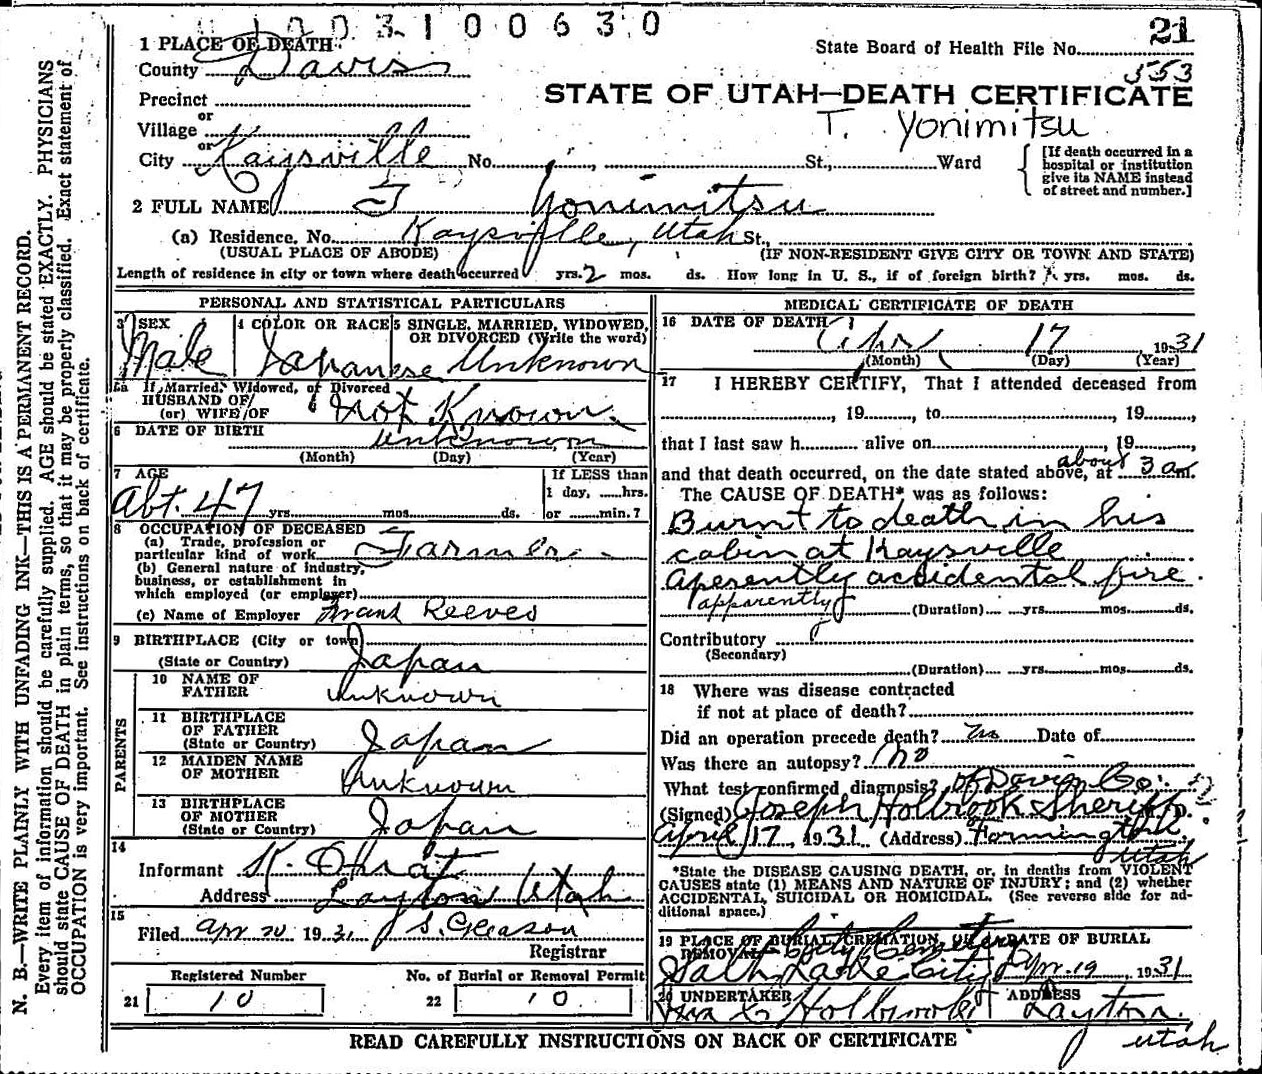 1003100630
21
1 PLACE OF DEATH
State Board of Health File No.
553
County Davis
STATE OF UTAH—DEATH CERTIFICATE
Precinct
T. Yonimitsu
or
Village
or
City Kaysville No. St., Ward
[If death occurred in a
hospital or institution
give its NAME instead
of street and number.]
2 FULL NAME T Yonimitsu
(a) Residence, No. Kaysville, Utah St.,
(USUAL PLACE OF ABODE) (IF NON-RESIDENT GIVE CITY OR TOWN AND STATE)
Length of residence in city or town where death occurred yrs. 2 mos. ds. How long in U. S., if of foreign birth? yrs. mos. ds.
PERSONAL AND STATISTICAL PARTICULARS
3 SEX
Male
4 COLOR OR RACE
Japanese
5 SINGLE, MARRIED, WIDOWED,
OR DIVORCED (Write the word)
Unknown
5a If Married, Widowed, or Divorced
HUSBAND OF
(or) WIFE OF
Not Known
6 DATE OF BIRTH
unknown
(Month) (Day) (Year)
7 AGE
Abt. 47 yrs. mos. ds.
If LESS than
1 day, hrs.
or min.?
8 OCCUPATION OF DECEASED
(a) Trade, profession or
particular kind of work Farmer
(b) General nature of industry,
business, or establishment in
which employed (or employer)
(c) Name of Employer Frank Reeves
9 BIRTHPLACE (City or town)
(State or Country) Japan
PARENTS
10 NAME OF
FATHER unknown
11 BIRTHPLACE
OF FATHER
(State or Country) Japan
12 MAIDEN NAME
OF MOTHER Unknown
13 BIRTHPLACE
OF MOTHER
(State or Country) Japan
14
Informant K.
Address Layton Utah
15
Filed Apr 20 1931 J S. Gleason
Registrar
Registered Number
21 10
No. of Burial or Removal Permit
22 10
MEDICAL CERTIFICATE OF DEATH
16 DATE OF DEATH
Apr 17 1931
(Month) (Day) (Year)
17 I HEREBY CERTIFY, That I attended deceased from
, 19 , to , 19 ,
that I last saw h alive on , 19 ,
about
and that death occurred, on the date stated above, at 3 am.
The CAUSE OF DEATH* was as follows:
Burnt to death in his
cabin at Kaysville
apesently accidental fire.
apparently
(Duration) yrs. mos. ds.
Contributory
(Secondary)
(Duration) yrs. mos. ds.
18 Where was disease contracted
if not at place of death?
Did an operation precede death? no Date of
Was there an autopsy? no
What test confirmed diagnosis? Of Davis Co.
(Signed) Joseph Holbrook Sheriff
April 17, 1931 (Address) Farmington
Utah
*State the DISEASE CAUSING DEATH, or, in deaths from VIOLENT
CAUSES state (1) MEANS AND NATURE OF INJURY; and (2) whether
ACCIDENTAL, SUICIDAL OR HOMICIDAL. (See reverse side for ad-
ditional space.)
19 PLACE OF BURIAL, CREMATION, OR
REMOVAL
City Cemetery
Salt Lake City
DATE OF BURIAL
Apr. 19, 1931
20 UNDERTAKER
Holbrook
ADDRESS
Layton.
Utah
READ CAREFULLY INSTRUCTIONS ON BACK OF CERTIFICATE
N. B.—WRITE PLAINLY WITH UNFADING INK—THIS IS A PERMANENT RECORD.
Every item of information should be carefully supplied. AGE should be stated EXACTLY. PHYSICIANS
should state CAUSE OF DEATH in plain terms, so that it may be properly classified. Exact statement of
OCCUPATION is very important. See instructions on back of certificate.